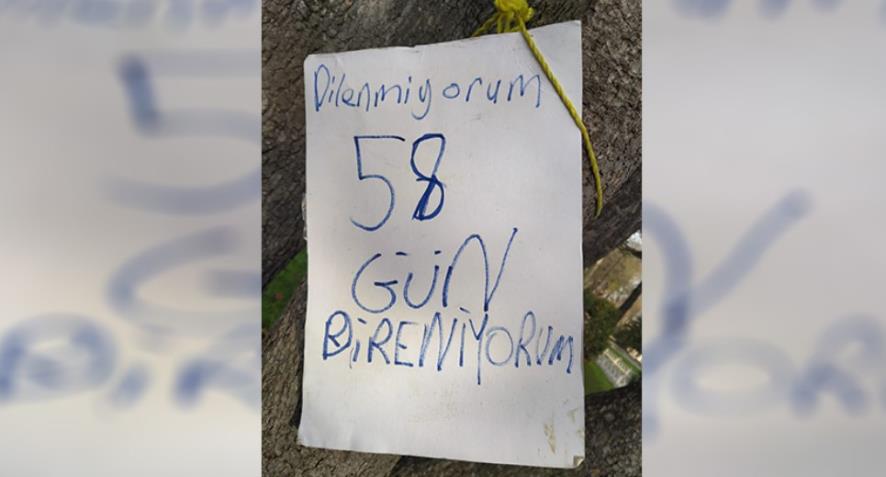 Dilenmiyorum
58
GÜN
DİRENİYORUM